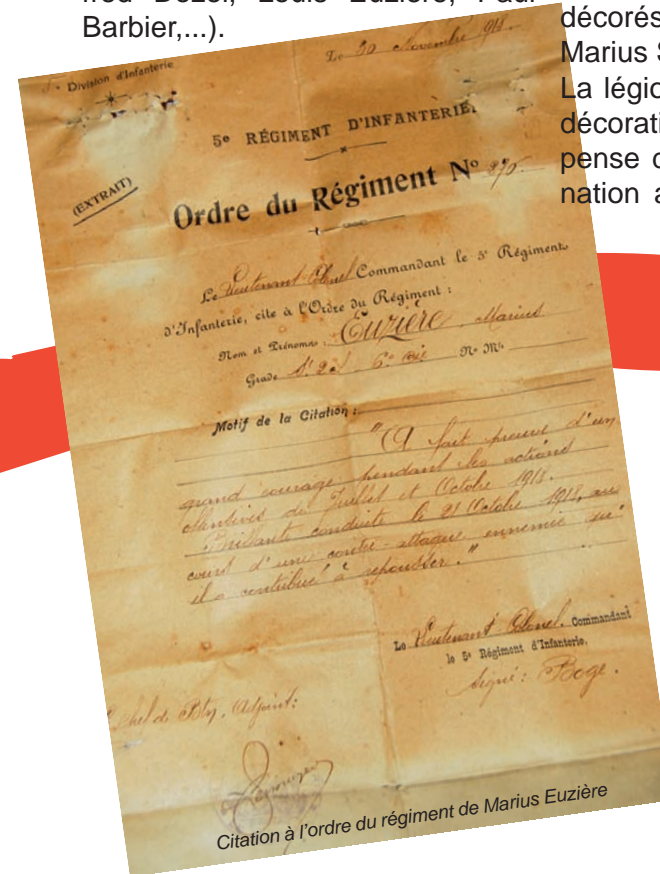 Barbier,...).
décorés
Marius S
La légio
décorati
pense
nation a
Division d'Infanterie
Le 30 Novembre 1918.
5e RÉGIMENT D'INFANTERIE.
(EXTRAIT)
Ordre du Régiment No 276.
Le Lieutenant Colonel Commandant le 5e Régiment
d'Infanterie, cite à l'Ordre du Régiment :
Nom et Prénoms : Euzière Marius
Grade No Mle
Motif de la Citation :
"A fait preuve d'un
grand courage pendant les actions
offensives de Juillet et Octobre 1918.
Brillante conduite le 21 Octobre 1918, au
cours d'une contre-attaque ennemie qu'
il a contribué à repousser."
Le Lieutenant Colonel Commandant
le 5e Régiment d'Infanterie.
Signé : Boge.
Chef de Btn, Adjoint :
Citation à l'ordre du régiment de Marius Euzière